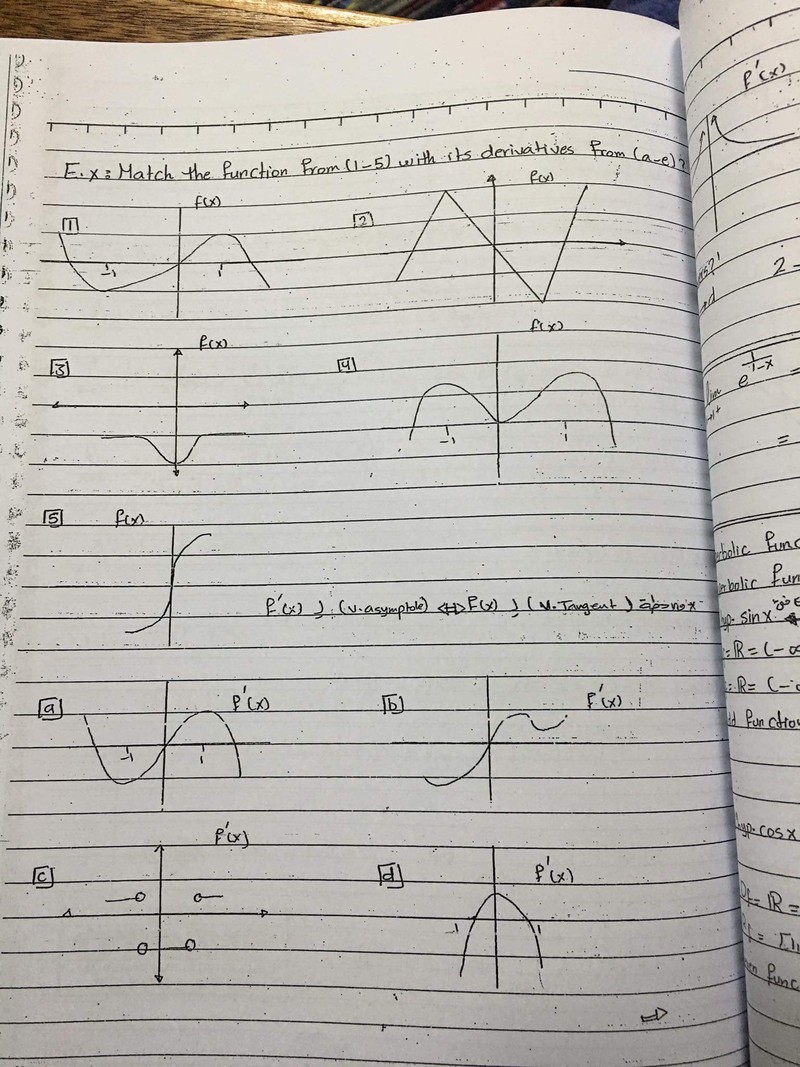 E.x: Match the function from (1-5) with its derivatives from (a-e)?
1 f(x)
-1 1
2 f(x)
3 f(x)
4 f(x)
-1 1
5 f(x)
f'(x) (V.asymptote) ⇔ f(x) (V.Tangent)
a f'(x)
-1 1
b f'(x)
c f'(x)
d f'(x)
-1 1
⇒
f'(x)
2-
lim e^(1/(1-x)) =
=
sin x
= R = (-∞
= R = (-
function
hyp. cos x
= R =